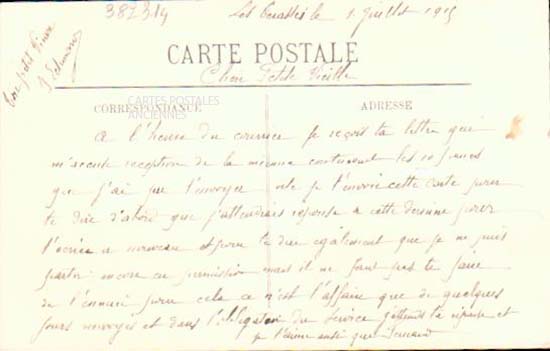 387314
Les le 1 Juillet 1915
Ton petit
CARTE POSTALE
Chère Petite Vieille
CARTES POSTALES
ANCIENNES
CORRESPONDANCE
ADRESSE
a l'heure du courrier je reçois ta lettre qui
m'accuse reception de la mienne contenant les 10 francs
que j'ai pu t'envoyer je t'envoie cette carte pour
te dire d'abord que j'attendrais reponse a cette derniere pour
t'ecrire a nouveau et pour te dire egalement que je ne puis
partir encore en permission mais il ne faut pas te faire
de l'ennui pour cela ce n'est l'affaire que de quelques
jours et dans l'obligation du service j'attends ta reponse et
je t'aime ainsi que